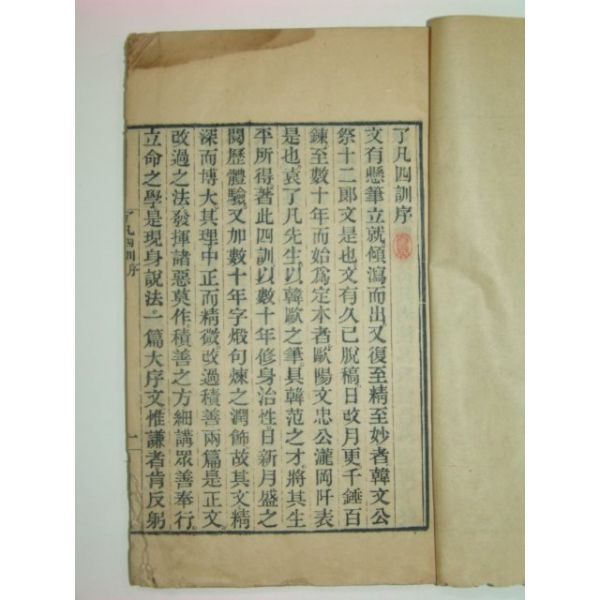 了凡四訓序
文有懸筆立就傾瀉而出又復至精至妙者韓文公
祭十二郎文是也文有久已脫稿日改月更千錘百
鍊至數十年而始爲定本者歐陽文忠公瀧岡阡表
是也袁了凡先生以韓歐之筆具韓范之才將其生
平所得著此四訓以數十年修身治性日新月盛之
閱歷體驗又加數十年字煅句煉之潤飾故其文精
深而博大其理中正而精微改過積善兩篇是正文
改過之法發揮諸惡莫作積善之方細講眾善奉行
立命之學是現身說法一篇大序文惟謙者肯反躬
了凡四訓序
一